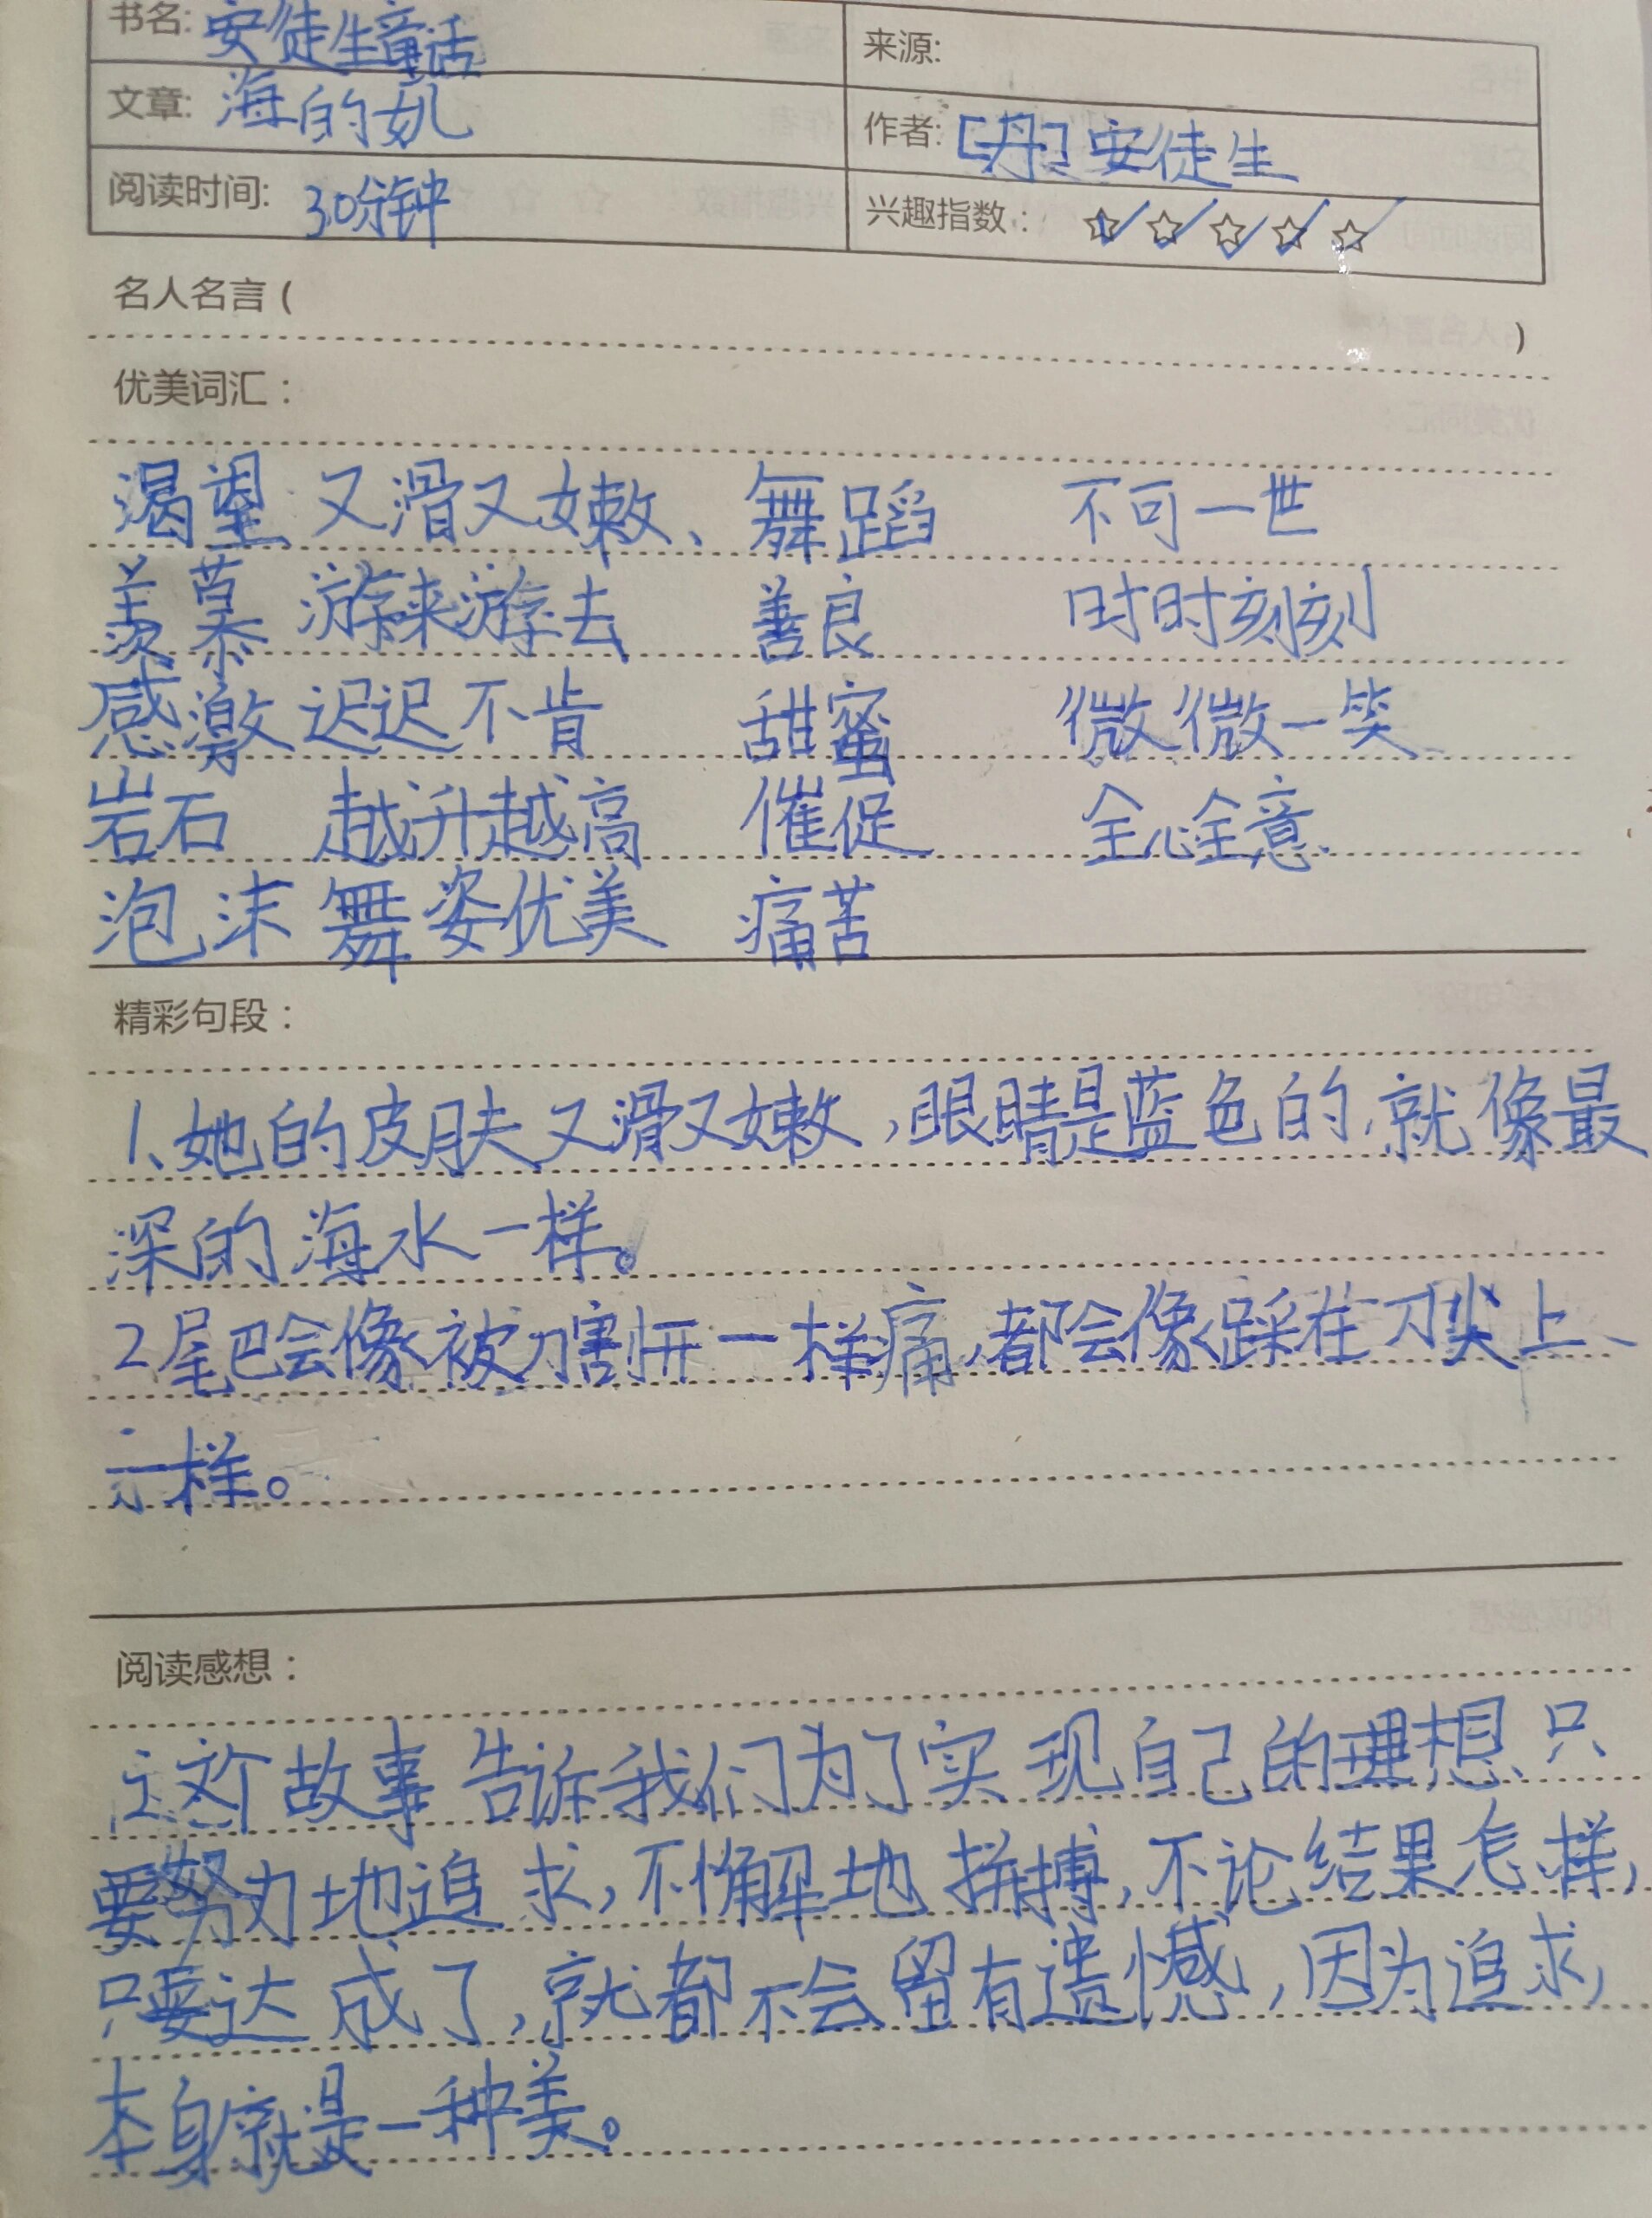 书名: 安徒生童话
来源:
文章: 海的女儿
作者: [丹]安徒生
阅读时间: 30分钟
兴趣指数: ☆☆☆☆☆
名人名言(
)
优美词汇:
渴望 又滑又嫩、舞蹈 不可一世
羡慕 游来游去 善良 时时刻刻
感激 迟迟不肯 甜蜜 微微一笑
岩石 越升越高 催促 全心全意
泡沫 舞姿优美 痛苦
精彩句段:
1、她的皮肤又滑又嫩,眼睛是蓝色的,就像最
深的海水一样。
2尾巴会像被刀割开一样痛,都会像踩在刀尖上
一样。
阅读感想:
这个故事告诉我们为了实现自己的理想、只
要努力地追求,不懈地拼搏,不论结果怎样,
只要达成了,就都不会留有遗憾,因为追求,
本身就是一种美。